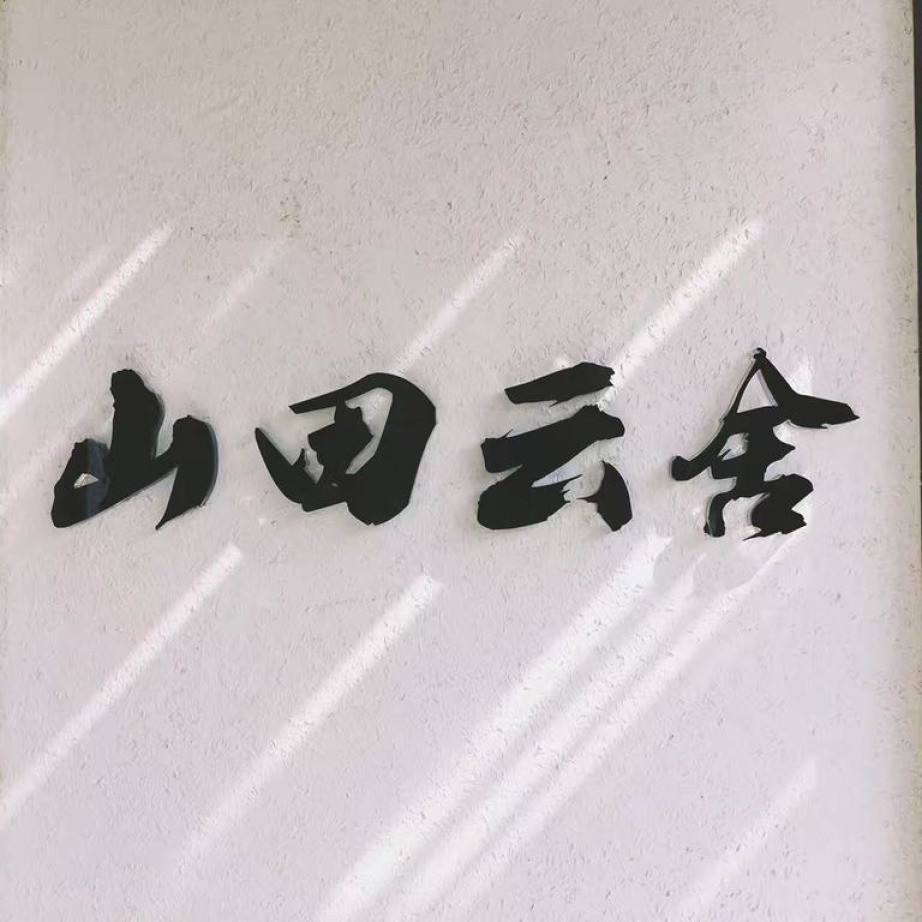 山田云舍